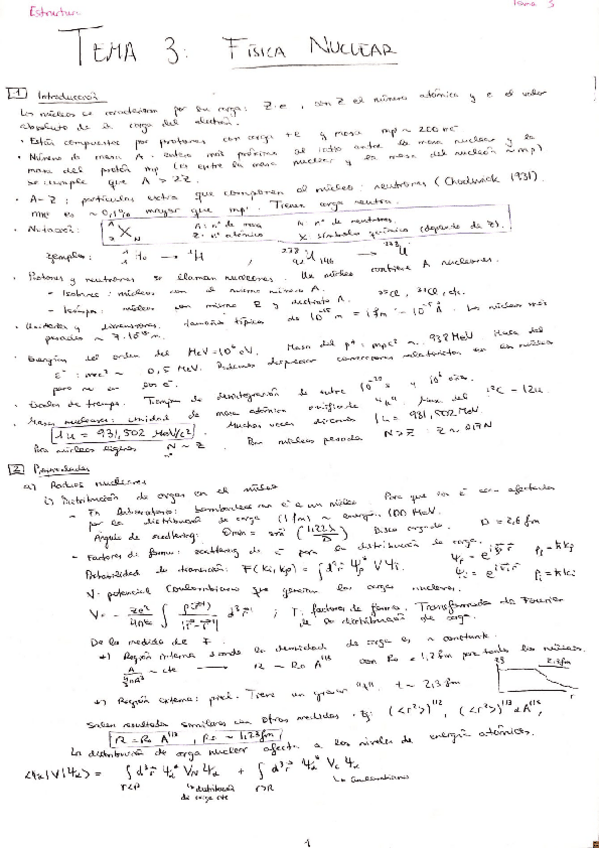 Estructura
Tema 3
TEMA 3: FÍSICA NUCLEAR
1 Introducción
Los núcleos se caracterizan por su carga: Z·e, con Z el número atómico y e el valor
absoluto de la carga del electrón.
· Están compuestos por protones con carga +e y masa mp ~ 2000 me
· Número de masa A: entero más próximo al ratio entre la masa nuclear y la
masa del protón mp (o entre la masa nuclear y la masa del nucleón ~ mp)
se cumple que A > 2Z
· A-Z: partículas extra que componen al núcleo: neutrones (Chadwick 1931).
es ~ 0,1% mayor que mp. Tienen carga neutra.
· Notación: A Z X N A: nº de masa N: nº de neutrones
Z: nº atómico X símbolo químico (depende de Z).
Ejemplo: → ¹H , ²³⁸ 92 U 146 → ²³⁸U
· Protones y neutrones se llaman nucleones. Un núcleo contiene A nucleones.
- Isóbaros: núcleos con el mismo número A.
- Isótopos: núcleos con mismo Z y distinto A. ³⁵Cl, ³⁷Cl, etc.
dimensiones: tamaño típico de 10⁻¹⁵ m = 1 fm Los núcleos más
pesados ~ 7·10⁻¹⁵ m.
· Energías del orden del MeV = 10⁶ eV. Masa del p⁺: mpc² ~ 938 MeV Masa del
e⁻: mec² ~ 0,5 MeV. Podemos despreciar correcciones relativistas en los núcleos
pero no en los e⁻.
· Escalas de tiempo. Tiempos de desintegración de entre 10⁻²⁰ s y 10⁶ años.
· Masas nucleares: unidad de masa atómica unificada "u". Masa del ¹²C = 12u.
1u = 931,502 MeV/c² Muchas veces diremos 1u = 931,502 MeV.
Para núcleos ligeros N ~ Z. Para núcleos pesados N > Z
2 Propiedades
a) Radios nucleares
i) Distribución de cargas en el núcleo
- En laboratorio: bombardear con e⁻ a un núcleo. Para que los e⁻ sean afectados
por la distribución de carga (1 fm) ~ energía 100 MeV.
Ángulo de scattering: θmin = (1,22λ/D) Disco cargado. D = 2,6 fm
- Factores de forma: scattering de e⁻ para la distribución de carga.
Probabilidad de transición: F(ki, kf) = ∫d³r ψf* V ψi pf = ħkf
pi = ħki
V: potencial coulombiano que generan las cargas nucleares.
F: factores de forma. Transformada de Fourier
de la distribución de carga.
De la medida de F.
*) Región interna: donde la densidad de carga es ~ constante.
~ cte → R ~ R₀ A^1/3 con R₀ = 1,2 fm para todos los núcleos.
2,3 fm
r
*) Región externa: Tiene un grosor t ~ 2,3 fm
Salen resultados similares con otras medidas. Ej: (<r²>)^1/2, (<r²>)^1/2 α A^1/3,
R = R₀ A^1/3, R₀ ~ 1,23 fm
La distribución de carga nuclear afecta a los niveles de energía atómicos.
r<R r>R
distribución
de carga cte
Coulombiano
1